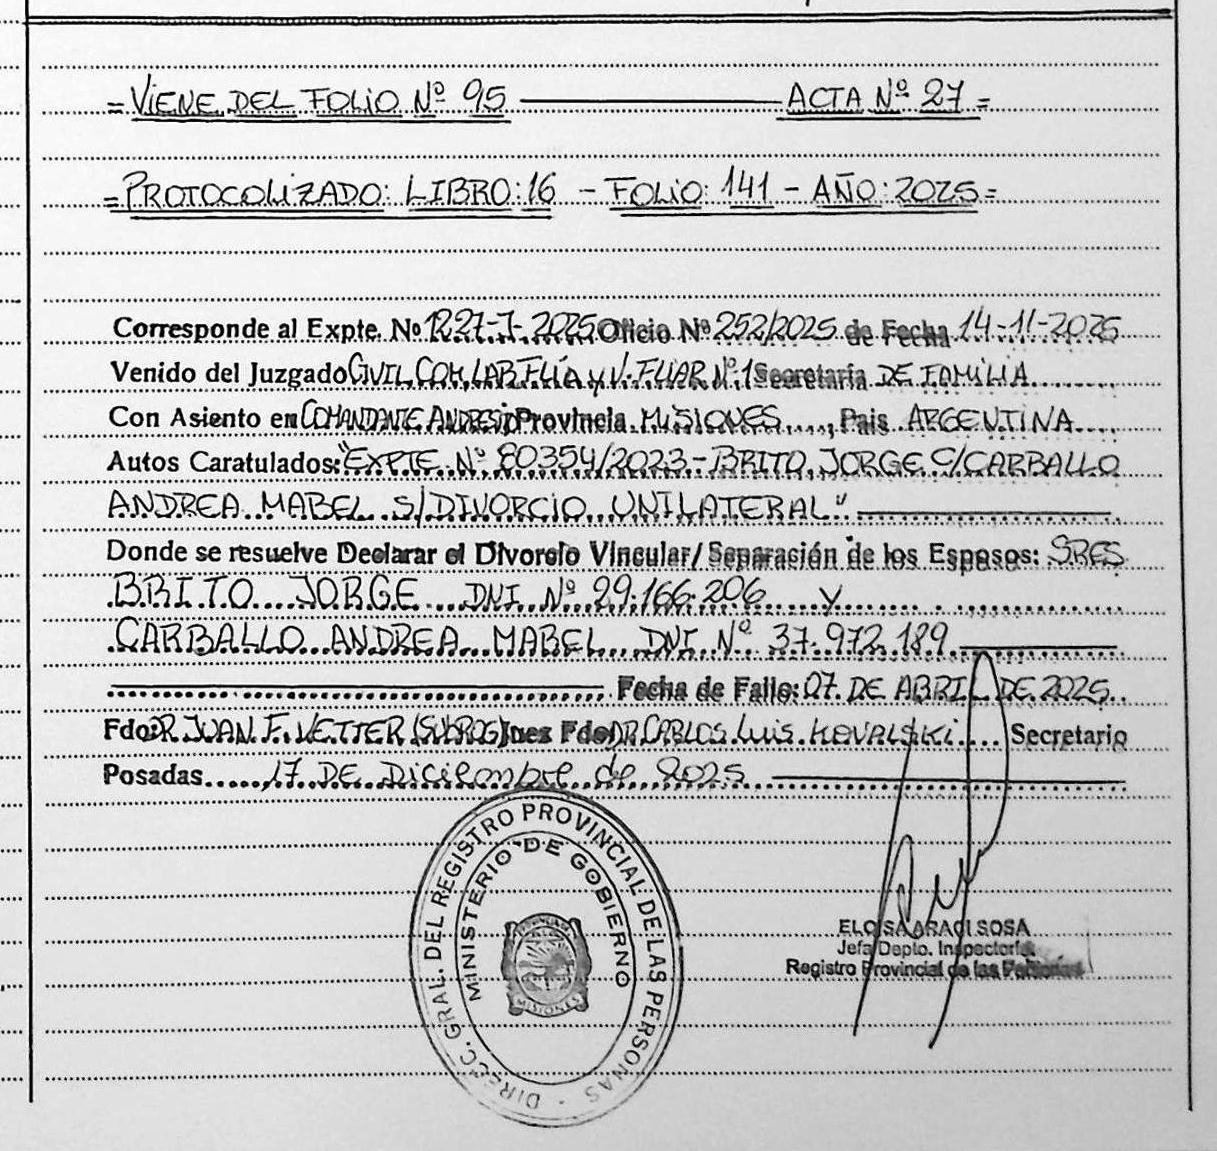 = VIENE DEL FOLIO Nº 95 ACTA Nº 27 =
= PROTOCOLIZADO: LIBRO: 16 - FOLIO: 141 - AÑO: 2025 =
Corresponde al Expte. Nº 1227-J-2025 Oficio Nº 252/2025 de Fecha 14-11-2025
Venido del Juzgado CIVIL, COM, LAB, FLÍA y V. FLIAR Nº 1 Secretaria DE FAMILIA
Con Asiento en COMANDANTE ANDRESITO Provincia MISIONES, Pais ARGENTINA
Autos Caratulados: "EXPTE Nº 80354/2023 - BRITO JORGE C/ CARBALLO
ANDREA MABEL S/ DIVORCIO UNILATERAL"
Donde se resuelve Declarar el Divorcio Vincular/ Separación de los Esposos: SRES
BRITO JORGE DNI Nº 29.166.206 y
CARBALLO ANDREA MABEL DNI Nº 37.972.189
Fecha de Fallo: 07 DE ABRIL DE 2025
Fdo: DR JUAN F. VETTER (SUBROG) Juez Fdo: DR CARLOS LUIS KOVALSKI Secretario
Posadas, 17 DE Diciembre de 2025
DIRECC. GRAL. DEL REGISTRO PROVINCIAL DE LAS PERSONAS -
MINISTERIO DE GOBIERNO
MISIONES
ELOISA ARACI SOSA
Jefa Depto. Inspectoría
Registro Provincial de las Personas